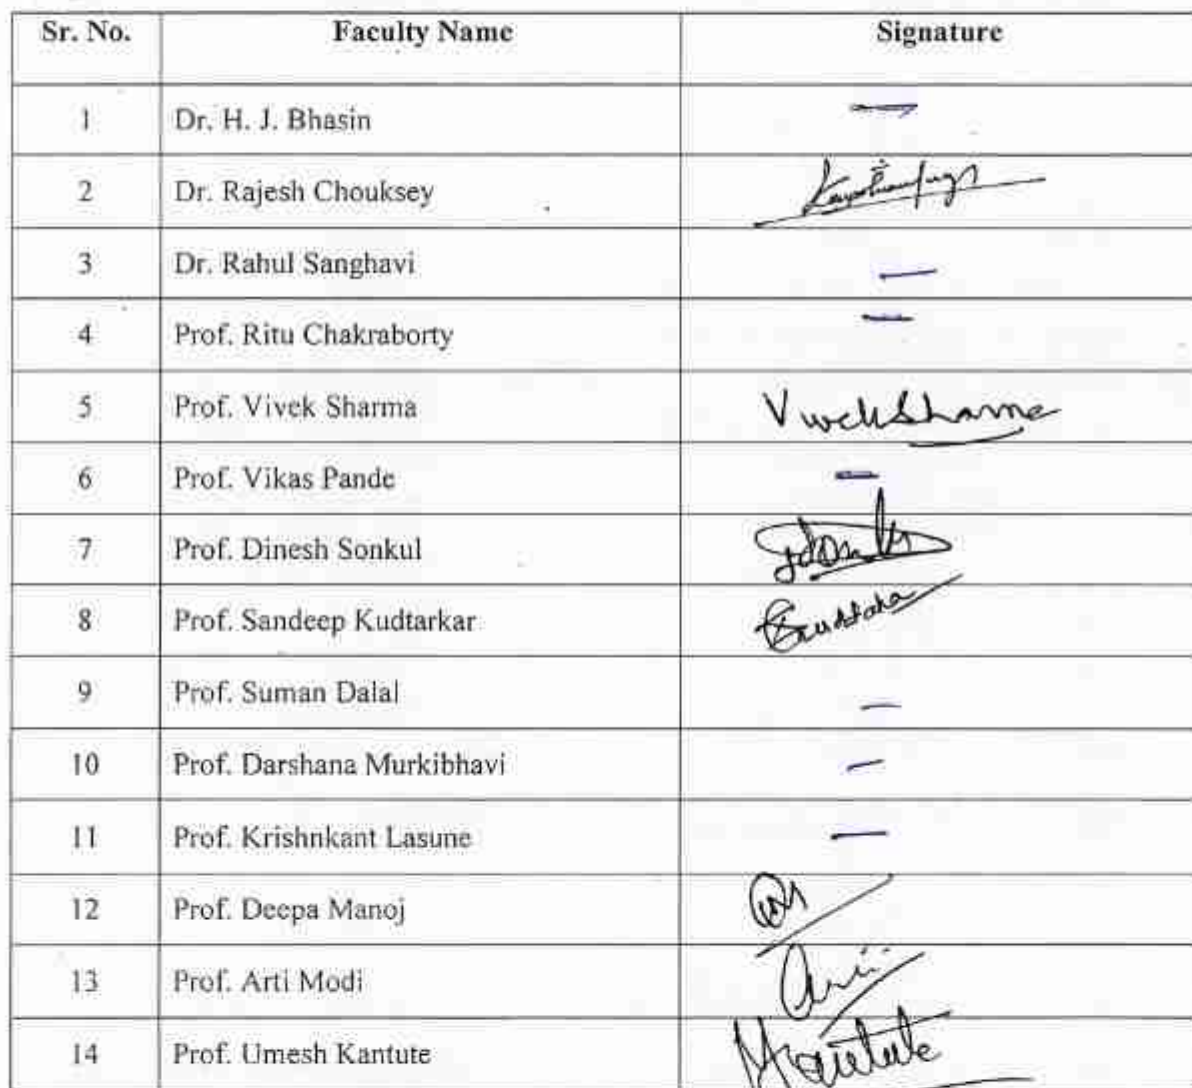 Sr. No. Faculty Name Signature
1 Dr. H. J. Bhasin
2 Dr. Rajesh Chouksey
3 Dr. Rahul Sanghavi
4 Prof. Ritu Chakraborty
5 Prof. Vivek Sharma Vivek Sharma
6 Prof. Vikas Pande
7 Prof. Dinesh Sonkul
8 Prof. Sandeep Kudtarkar
9 Prof. Suman Dalal
10 Prof. Darshana Murkibhavi
11 Prof. Krishnkant Lasune
12 Prof. Deepa Manoj
13 Prof. Arti Modi
14 Prof. Umesh Kantute